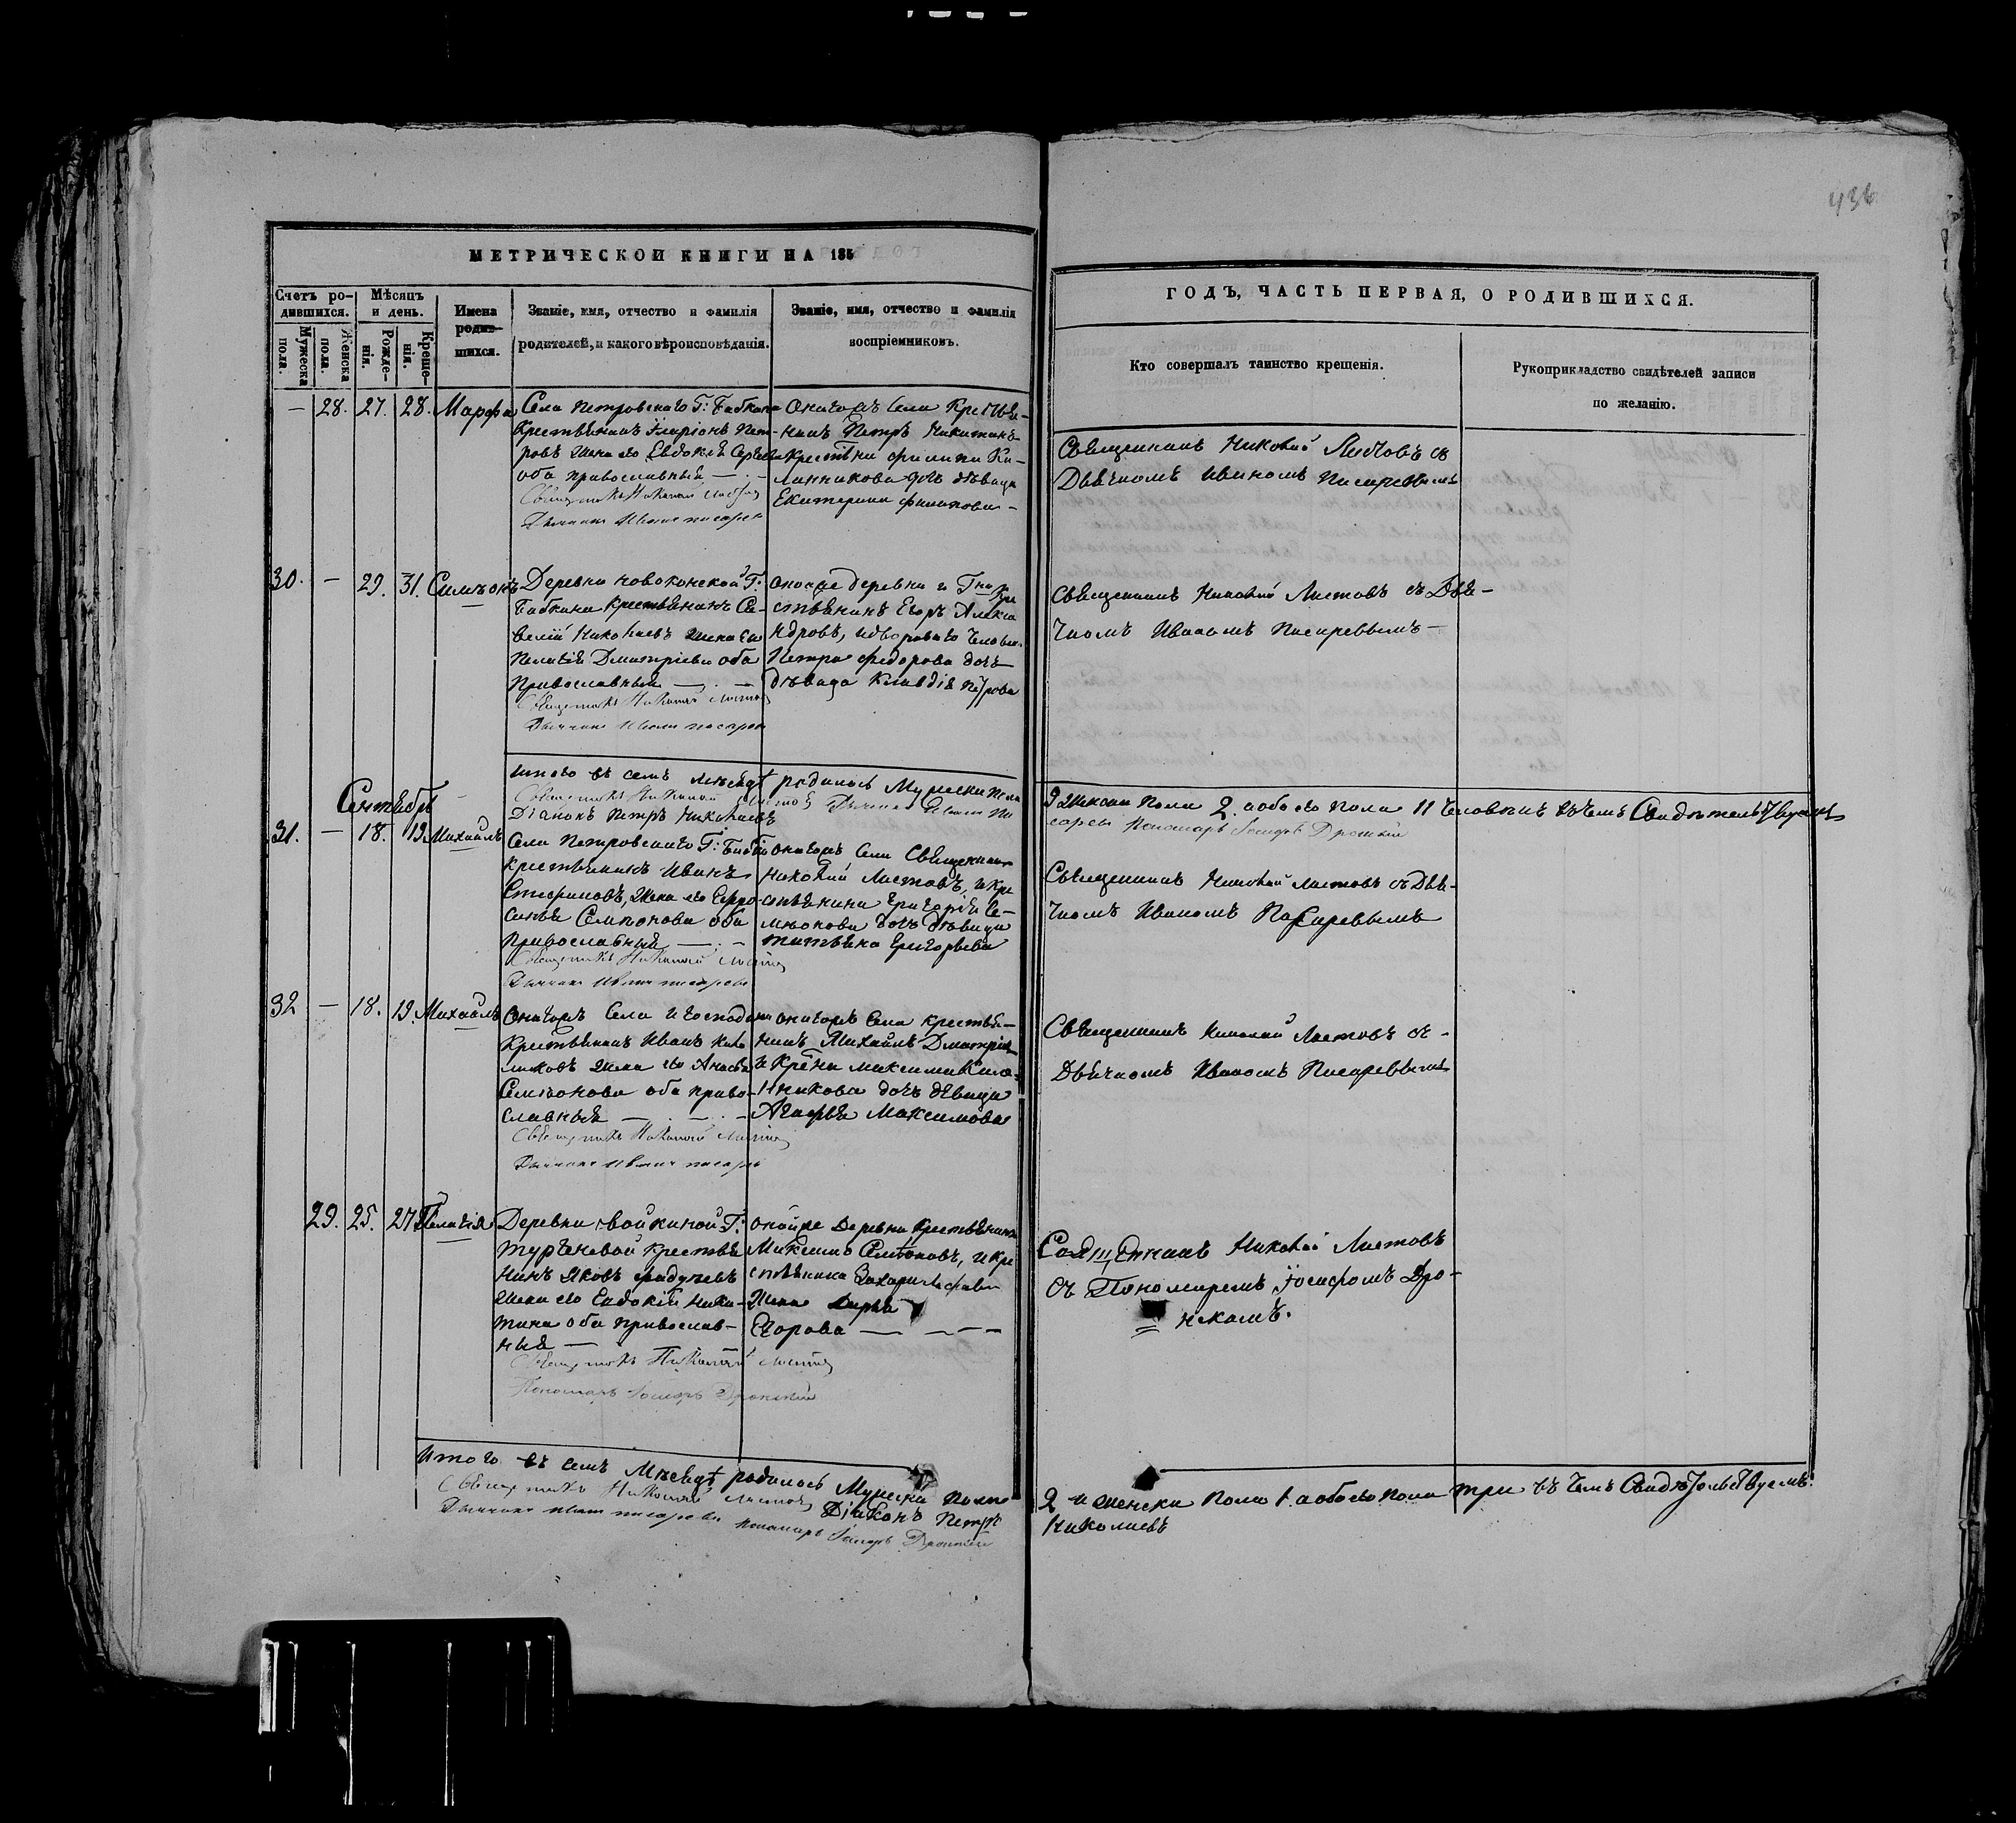 436
МЕТРИЧЕСКОЙ КНИГИ НА 185
ГОДЪ, ЧАСТЬ ПЕРВАЯ, О РОДИВШИХСЯ.
Счетъ ро-
дившихся.
Мужеска
пола.
Женска
пола.
Мѣсяцъ
и день.
Рожде-
нія.
Креще-
нія.
Имена
родив-
шихся.
Званіе, имя, отчество и фамилія
родителей, и какого вѣроисповѣданія.
Званіе, имя, отчество и фамилія
воспріемниковъ.
Кто совершалъ таинство крещенія.
Рукоприкладство свидѣтелей записи
по желанію.
— 28. 27. 28. Марфа
Села Петровскаго Г: Бабкина
Крестьянинъ Иларіонъ Пет-
ровъ жена его Евдокія
оба православныя
Священникъ Николай Листовъ
Дьячекъ Иванъ Писаревъ
Онагожъ Села Крестья-
нинъ Петръ Никитинъ
Филипа
дѣвица
Екатерина Филипова
Священникъ Николай Листовъ съ
Дьячкомъ Иваномъ Писаревымъ
30. — 29. 31. Симѣонъ
Деревни Г:
Бабкина Крестьянинъ Са-
велій Николаевъ жена его
Пелагія Дмитріева оба
Православныя
Священникъ Николай Листовъ
Дьячекъ Иванъ Писаревъ
Онойже деревни и Гна Кре
стьянинъ Егоръ Алекса
ндровъ, идвороваго
Петра Федорова дочь
дѣвица Клавдія Петрова
Священникъ Николай Листовъ съ Дья-
чкомъ Иваномъ Писаревымъ
Итого въ семъ Мѣсяцѣ родилось Мужеска Пола
9 Женска Пола 2. а обоего пола 11 Человѣкъ въ чемъ Свидѣтельствуемъ
Священникъ Николай Листовъ Дьячекъ Иванъ Пи
саревъ Пономарь Іосифъ Дронскій
Діаконъ Петръ Николаевъ
Сентябрь
31. — 18. 19. Михаилъ
Села Петровскаго Г: Бабки
крестьянинъ Иванъ
Стефановъ, Жена его Евфро-
синья Семіонова оба
Православныя
Священникъ Николай Листовъ
Дьячекъ Иванъ Писаревъ
онагожъ Села Священникъ
Николай Листовъ, и Кре
стьянина Григорія Се-
міонова дочь дѣвица
Татьяна Григорьева
Священникъ Николай Листовъ съ Дья-
чкомъ Иваномъ Писаревымъ
32 — 18. 19. Михаилъ
Онагожъ Села и Господина
Крестьянинъ Иванъ
жена его
Семіонова оба право-
славныя
Священникъ Николай Листовъ
Дьячекъ Иванъ Писаревъ
онагожъ Села Крестья-
нинъ Михаилъ Дмитріевъ
и Максима
дочь дѣвица
Агафья Максимова
Священникъ Николай Листовъ съ
Дьячкомъ Иваномъ Писаревымъ
29. 25. 27. Пелагія
Деревни Войкиной Г:
Тургеневой Крестья
нинъ Яковъ
Жена его Евдокія Ники-
тина оба православ-
ныя
Священникъ Николай Листовъ
Пономарь Іосифъ Дронскій
онойже Деревни Крестьянинъ
Максимъ Семіоновъ, и Кре
стьянина Захара
Жена Дарья
Егорова
Священникъ Николай Листовъ
съ Пономаремъ Іосифомъ Дро-
нскомъ.
Итого въ семъ Мѣсяцѣ родилось Мужеска Пола
2 и Женска Пола 1. а обоего Пола три въ чемъ Свидѣтельствуемъ.
Священникъ Николай Листовъ Діаконъ Петръ
Николаевъ
Дьячекъ Иванъ Писаревъ Пономарь Іосифъ Дронскій